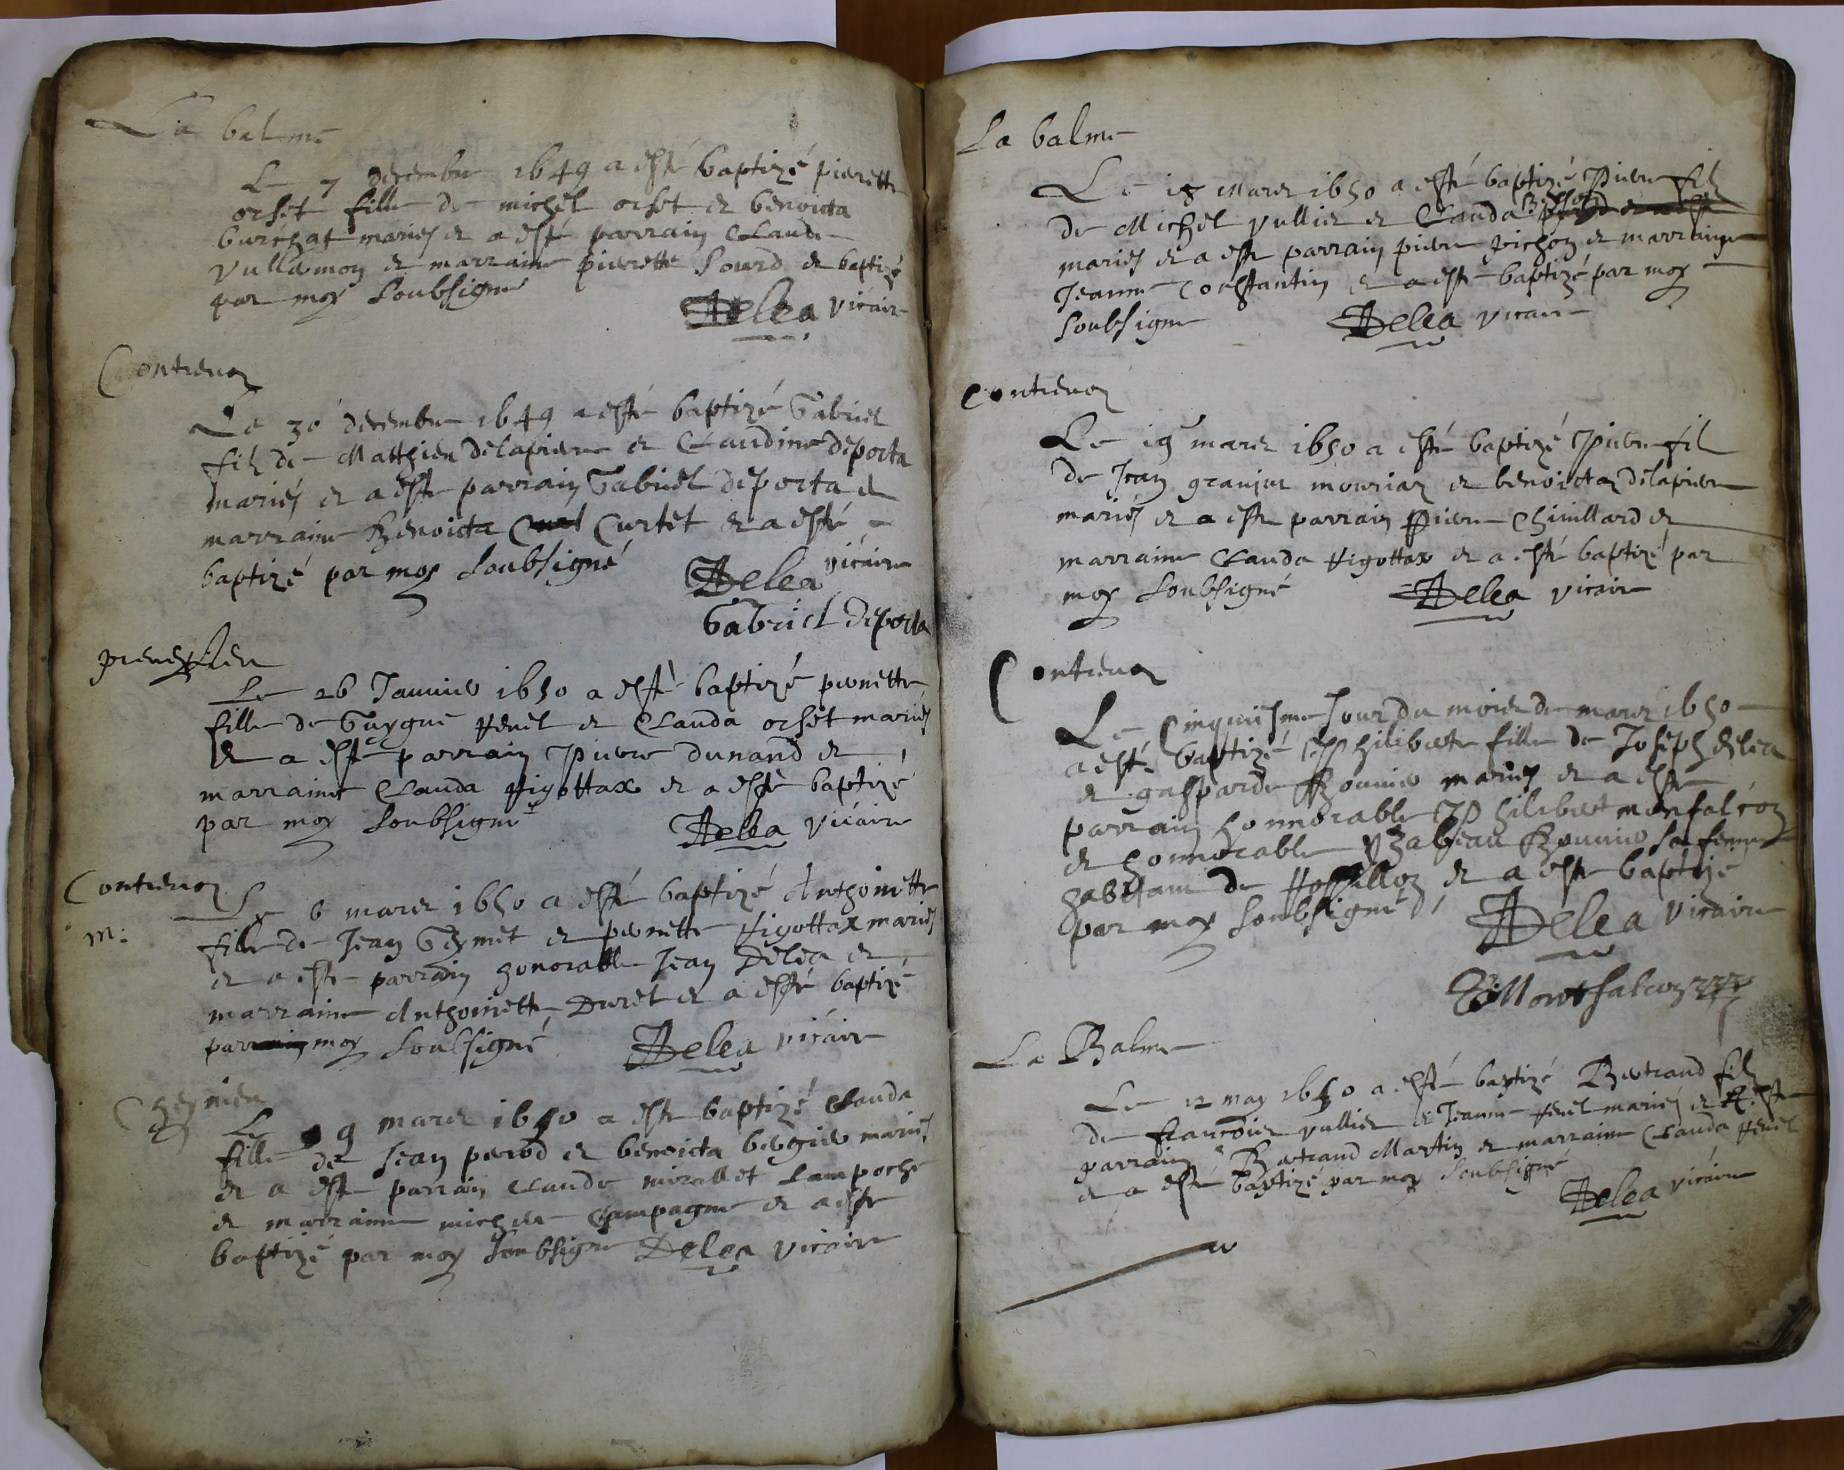 La balme
Le 7 decembre 1649 a esté baptizé pierrette
orset fille de michel orset et benoicta
burchat mariés et a esté parrain Claude
vullermoz et marraine pierrette Sourd et baptizé
par moy Soubsigné
Delea vicaire
Contrevoz
Le 30 decembre 1649 a esté baptizé Gabriel
filz de Matthieu Delapierre et Claudine deporta
mariés et a esté parrain Gabriel deporta et
marraine Benoicta Curtet et a esté
baptizé par moy Soubsigné
Delea vicaire
Gabriel deporta
Le 26 Janvier 1650 a esté baptizé pernette
fille de Guygue Revel et Clauda orset mariés
et a esté parrain Pierre dunand et
marraine Clauda Rigottax et a esté baptizé
par moy Soubsigné
Delea vicaire
Contrevoz
m:
Le 6 mars 1650 a esté baptizé Anthoinette
fille de Jean Geymet et pernette Rigottax mariés
et a esté parrain honorable Jean Delea et
marraine Anthoinette Duret et a esté baptizé
par moy Soubsigné
Delea vicaire
Cheynieu
Le 9 mars 1650 a esté baptizé Clauda
fille de Jean perrod et benoicta bergier mariés
et a esté parrain Claude mirallet Lampoche
et marraine michere Champagne et a esté
baptizé par moy Soubsigné Delea vicaire
La balme
Le 18 Mars 1650 a esté baptizé Pierre filz
de Michel vullier et Clauda
mariés et a esté parrain pierre pichoz et marraine
Jeanne Constantin et a esté baptizé par moy
Soubsigne
Delea vicaire
Contrevoz
Le 19 mars 1650 a esté baptizé Pierre fil
de Jean granjus mouriaz et benoictaz Delapierre
mariés et a esté parrain Pierre Chinillard et
marraine Clauda Rigottax et a esté baptizé par
moy Soubsigné
Delea vicaire
Contrevoz
Le Cinquiesme Jour du mois de mars 1650
a esté baptizé Philiberte fille de Joseph delea
et gasparde Bouvier mariés et a esté
parrain honnorable Philibert monfalcoz
et honnorable Yzabeau Bouvier Sa femme
habitant de Rossilloz et a esté baptizé
par moy Soubsigné
Delea vicaire
Montfalcoz
La Balme
Le 12 may 1650 a esté baptizé Bertrand filz
de francois vullier et Jeanne Revel mariés et a esté
parrain Bertrand Martin et marraine Clauda Revel
et a esté baptizé par moy Soubsigné
Delea vicaire